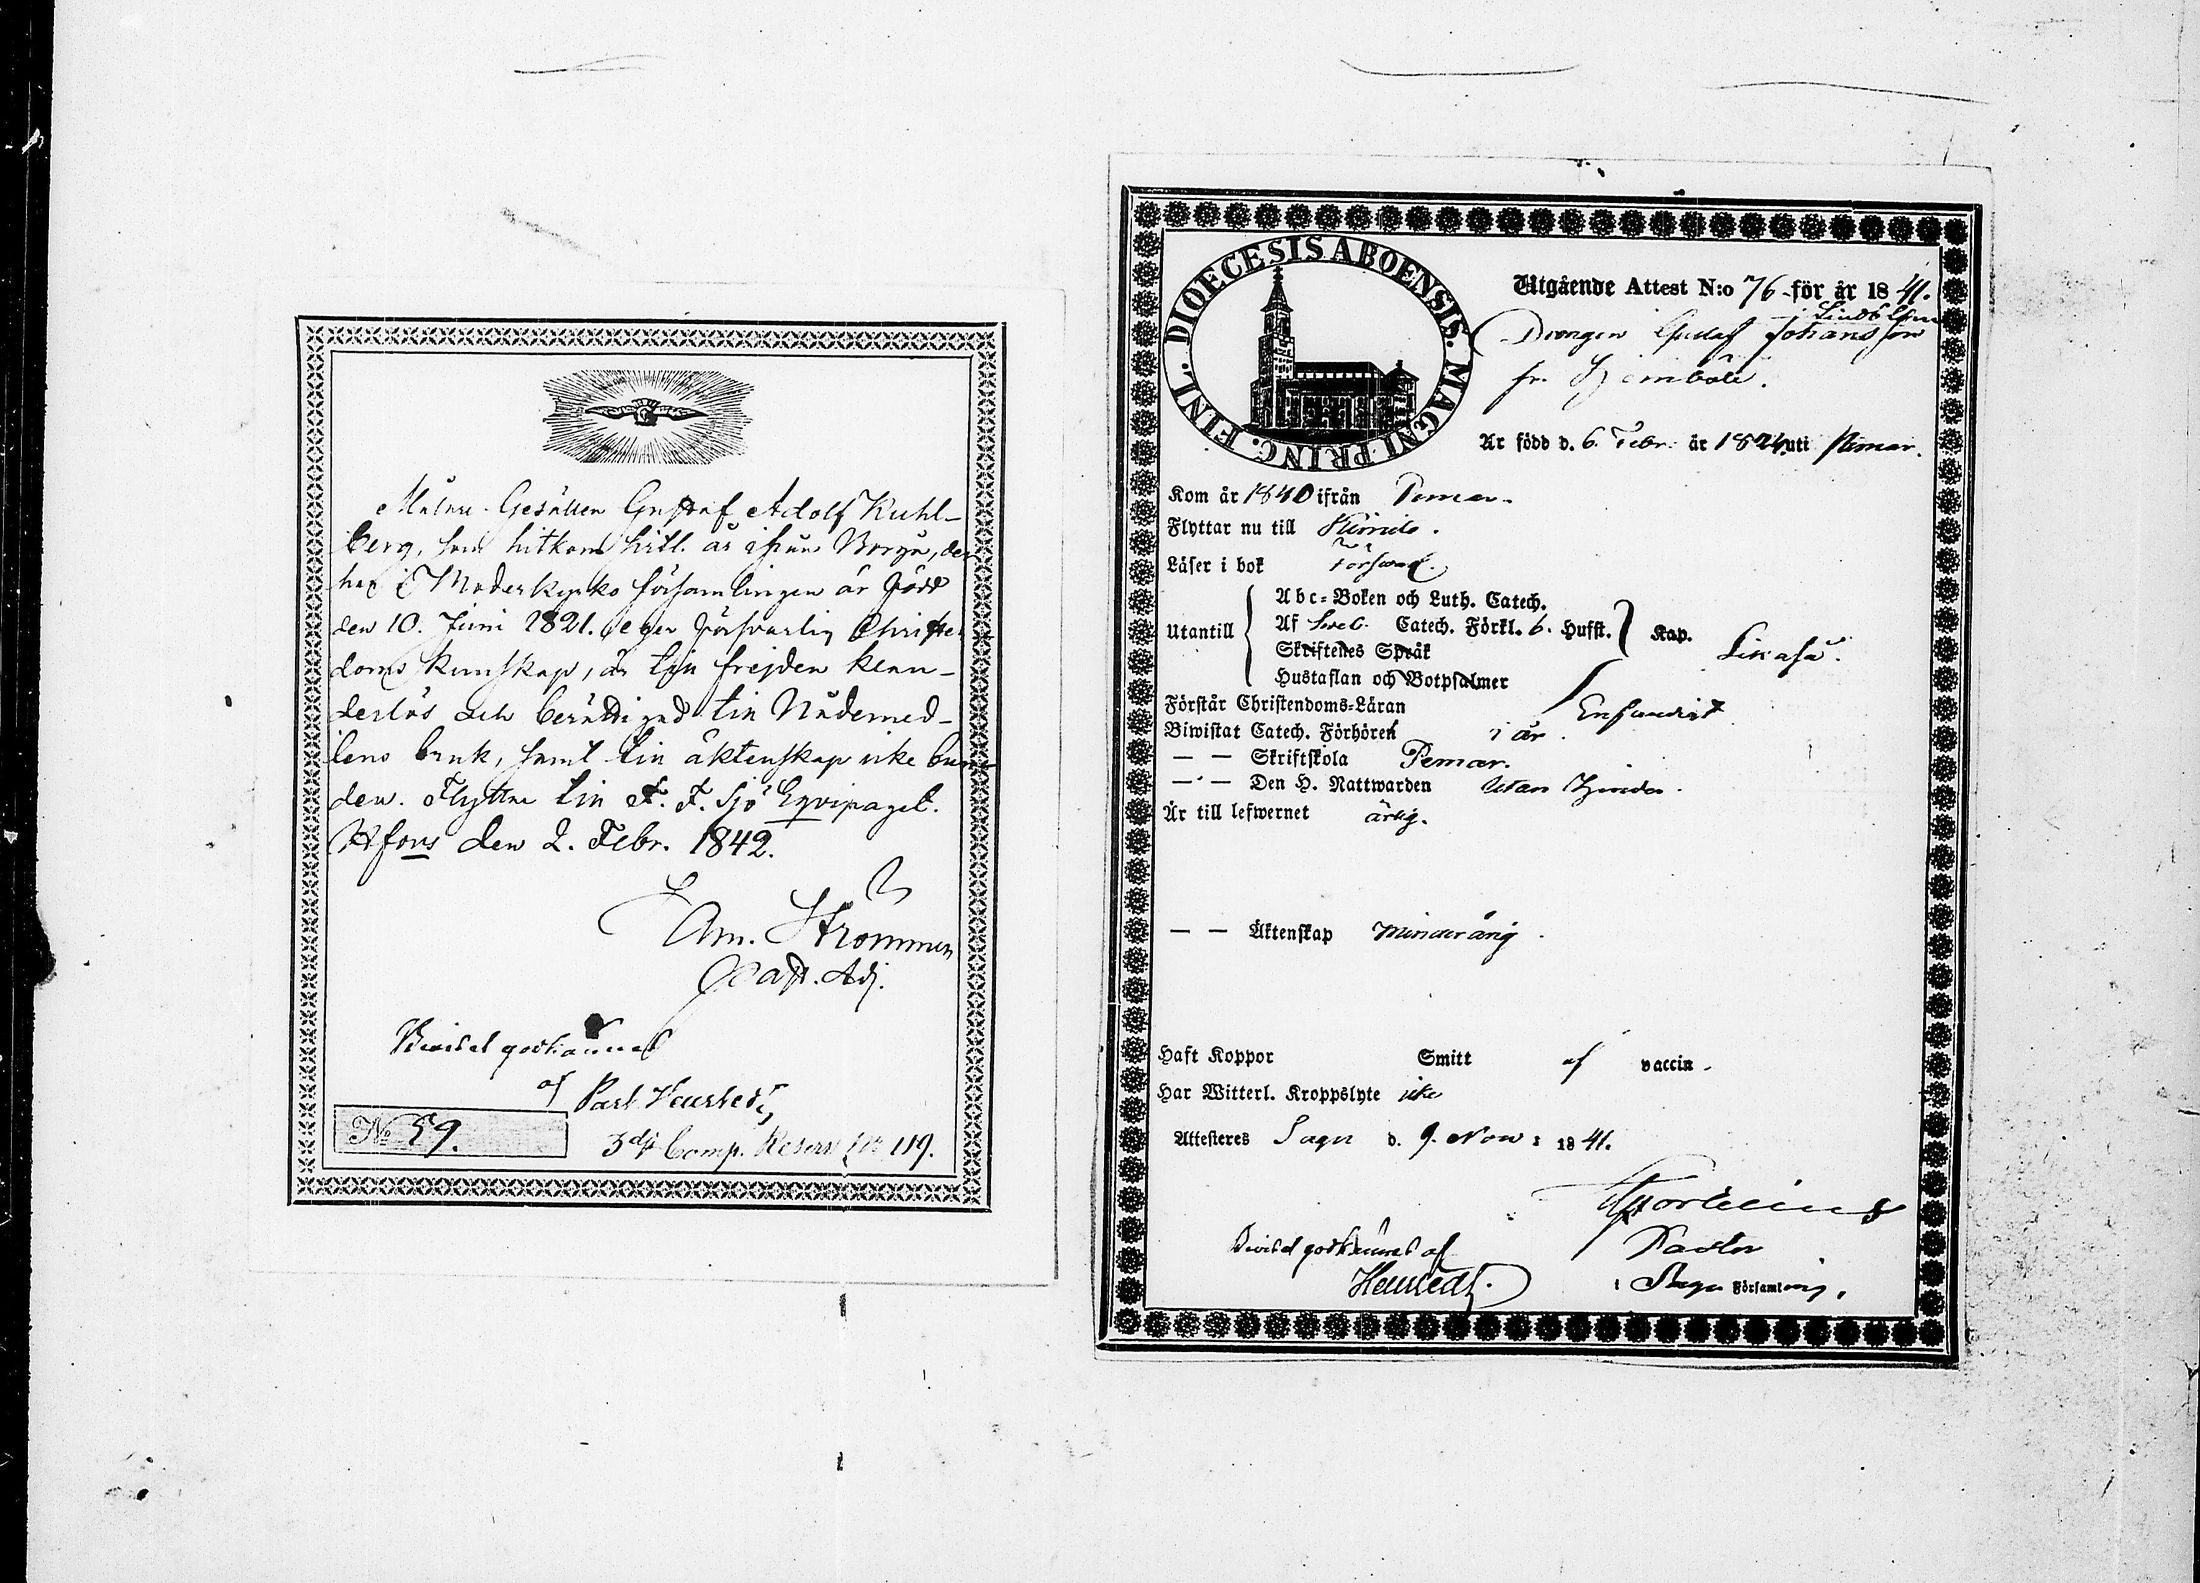 Målare-Gesällen Gustaf Adolf Kuhl-
berg, som hitkom sistl. år ifrån Borgå, der
han i Moderkyrko församlingen är född
den 10. Juni 1821. eger försvarlig Christen-
doms kunskap, är till frejden klan-
derlös och berättigad till Nådemed-
lens bruk, samt till äktenskap icke bun-
den. Flyttar till F. F. Sjö Eqvipaget.
Hfors den 2. Febr. 1842.
Em. Strömmer
Past. Adj.
Beviset godkännes
af Carl Henstedt,
No 59.
3dje Comp. Reserv No 119.
DIOECESIS ABOENSIS. MAGNI PRINC. FINL.
Utgående Attest N:o 76 för år 1841.
Lindblom
Drengen Gustaf Johansson
fr.
Är född d. 6. Febr. år 1824 uti Pemar.
Kom år 1840 ifrån Pemar.
Flyttar nu till Kimito.
Läser i bok Försvarl.
Utantill
Abc-Boken och Luth. Catech.
Af Sveb. Catech. Förkl. 6. Hufst. Kap.
Skriftenes Språk
Hustaflan och Botpsalmer
Likaså.
Förstår Christendoms-Läran Enfaldigt
Biwistat Catech. Förhören i år.
— — Skriftskola Pemar.
— — Den H. Nattwarden Utan hinder.
Är till lefwernet ärlig.
— — Äktenskap Minderårig.
Haft Koppor Smitt af vaccin.
Har Witterl. Kroppslyte icke
Attesteres Sagu d. 9. Nov: 1841.
Pastor
i Sagu Församling.
Beviset godkännes af
Henstedt.